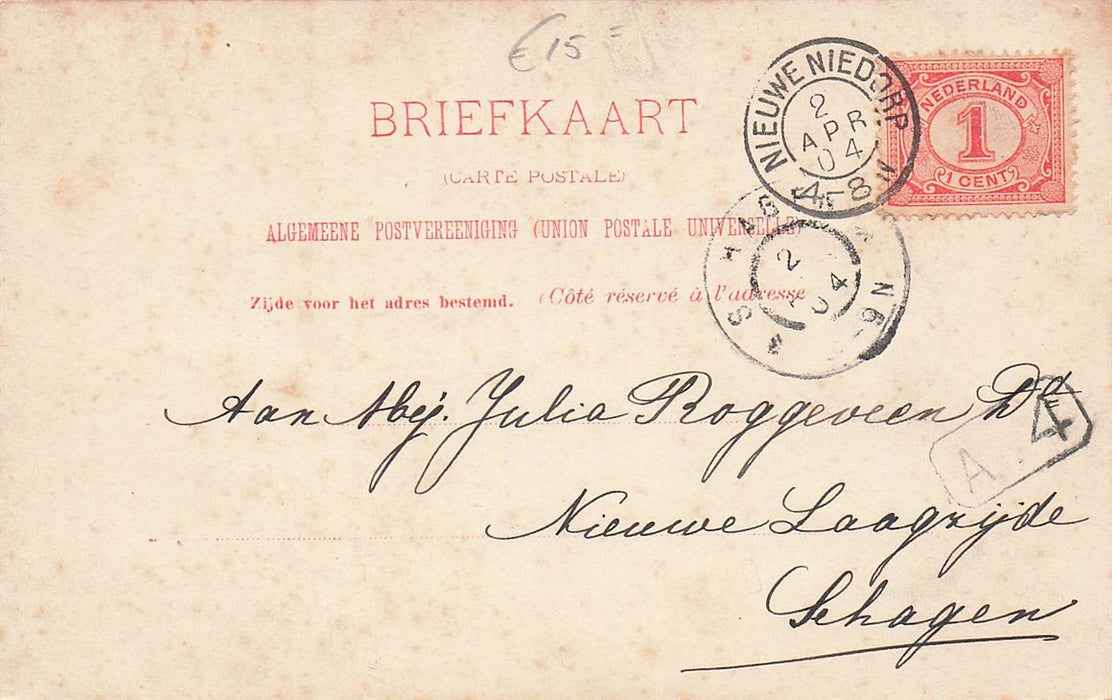 € 15 =
BRIEFKAART
(CARTE POSTALE)
ALGEMEENE POSTVEREENIGING (UNION POSTALE UNIVERSELLE)
Zijde voor het adres bestemd. (Côté réservé à l'adresse
NIEUWE NIEDORP
2
APR
04
4-8 N
NEDERLAND
1
1 CENT
SCHAGEN
2
04
Aan Mej. Julia Roggeveen Dd
A 4
Nieuwe Laagzijde
Schagen